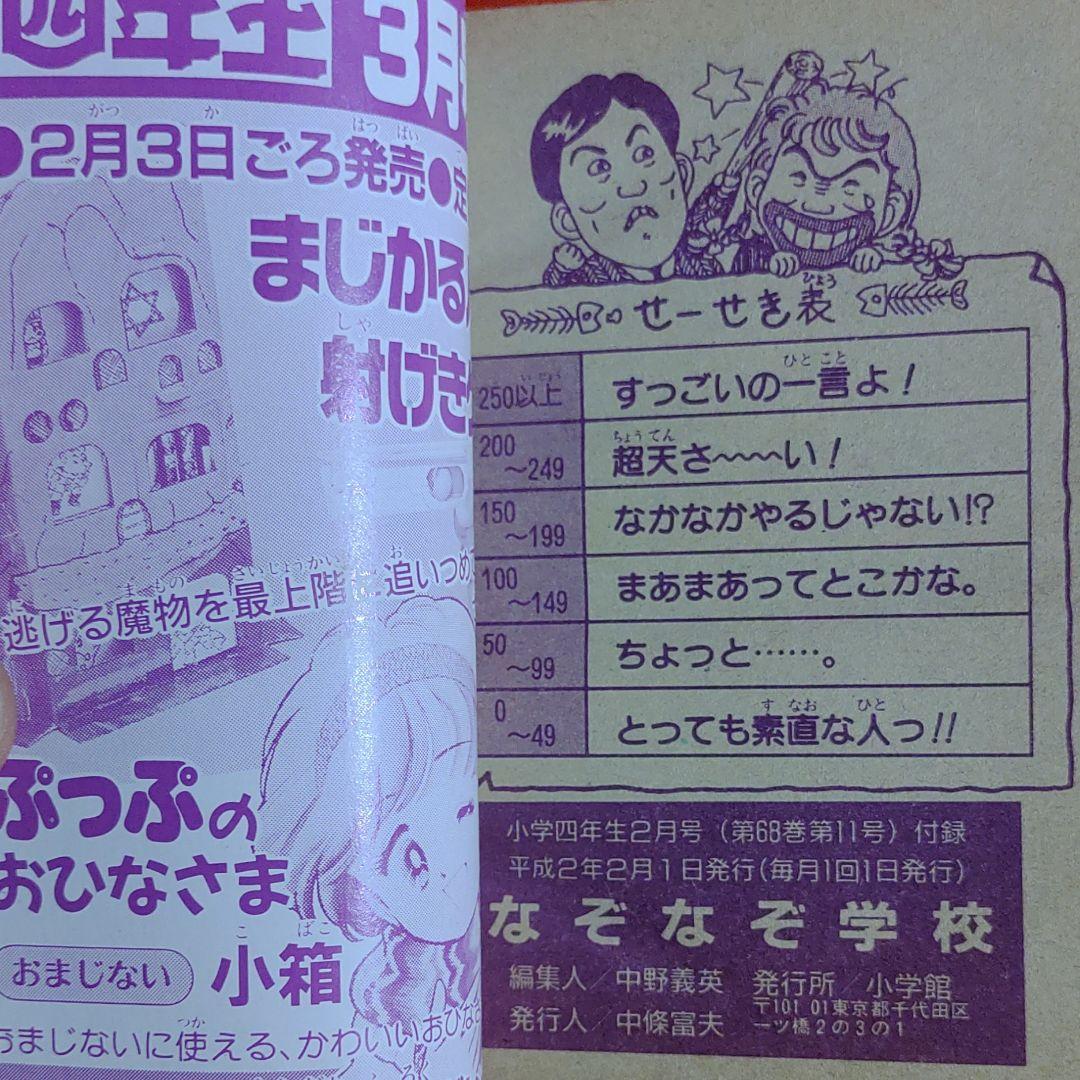 四年生 3月
●2月3日ごろ発売●定
まじかる
射げき
逃げる魔物を最上階に追いつめ
ぷっぷの
おひなさま
おまじない 小箱
おまじないに使える、かわいいおひな
せーせき表
250以上 すっごいの一言よ!
200~249 超天さ~~~い!
150~199 なかなかやるじゃない!?
100~149 まあまあってとこかな。
50~99 ちょっと……。
0~49 とっても素直な人っ!!
小学四年生2月号(第68巻第11号)付録
平成2年2月1日発行(毎月1回1日発行)
なぞなぞ学校
編集人/中野義英 発行所/小学館
発行人/中條富夫 〒101 01東京都千代田区
一ツ橋2の3の1